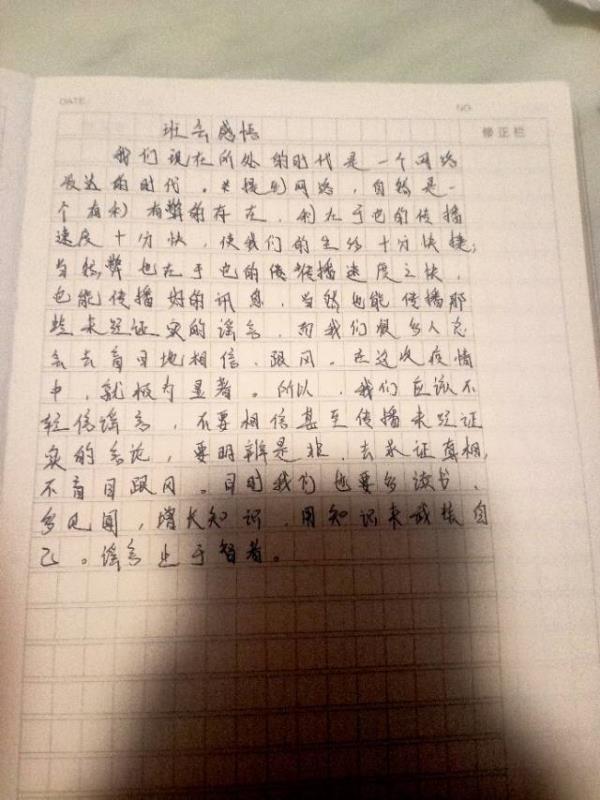 DATE
NO
修正栏
班会感悟
我们现在所处的时代是一个网络
发达的时代。提到网络，自然是一
个有利有弊的存在，利在于它的传播
速度十分快，使我们的生活十分快捷；
当然弊也在于它的传播速度之快，
它能传播好的讯息，当然也能传播那
些未经证实的谣言，而我们很多人总
会去盲目地相信、跟风。在这次疫情
中，就极为显著。所以，我们应该不
轻信谣言，不要相信甚至传播未经证
实的言论，要明辨是非，去求证真相，
不盲目跟风。同时我们也要多读书、
多见闻，增长知识，用知识来武装自
己。谣言止于智者。